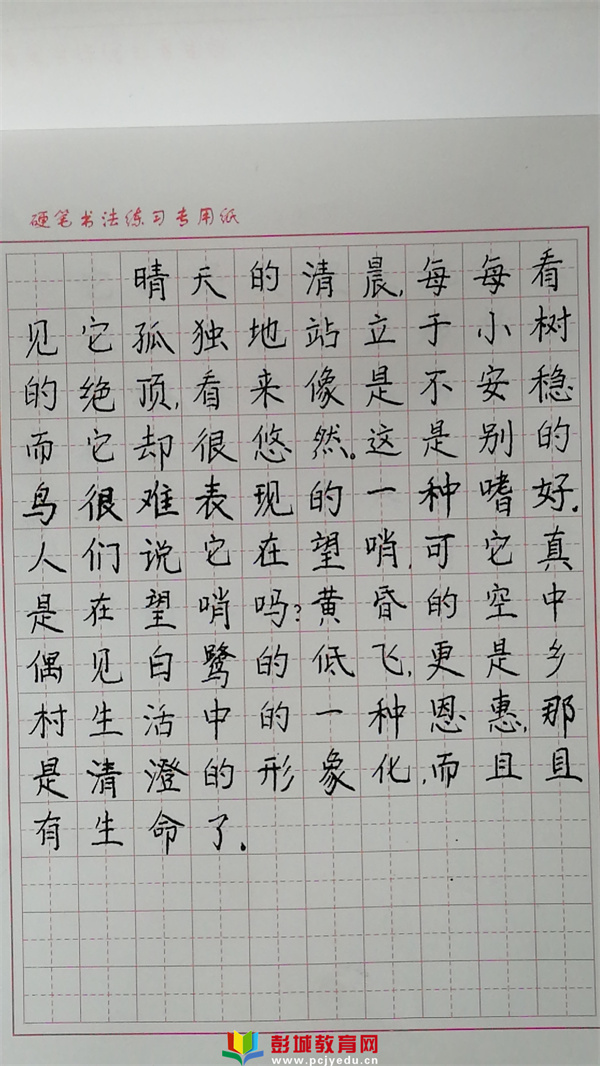 硬笔书法练习专用纸
晴天的清晨,每每看
见它孤独地站立于小树
的绝顶,看来像是不安稳
而它却很悠然。这是别的
鸟很难表现的一种嗜好。
人们说它在望哨,可它真
是在望哨吗?黄昏的空中
偶见白鹭的低飞,更是乡
村生活中的一种恩惠,那
是清澄的形象化,而且且
有生命了。
彭城教育网
www.pcjyedu.cn